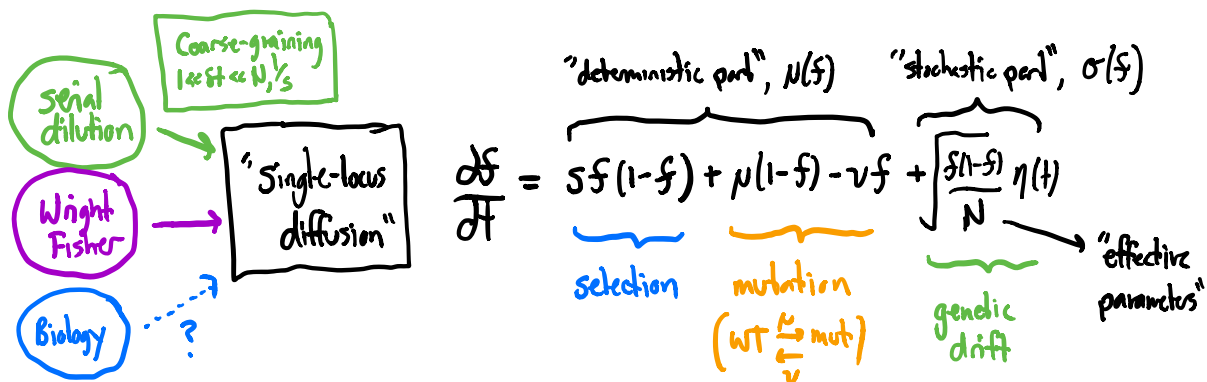 Coarse-graining
1 << δt << N, 1/s
serial
dilution
Wright
Fisher
Biology
?
"single-locus
diffusion"
"deterministic part", μ(f)
"stochastic part", σ(f)
df/dt = sf(1-f) + μ(1-f) - νf + √(f(1-f)/N) η(t)
selection
mutation
(WT ⇄ mut)
μ
ν
genetic
drift
"effective
parameters"